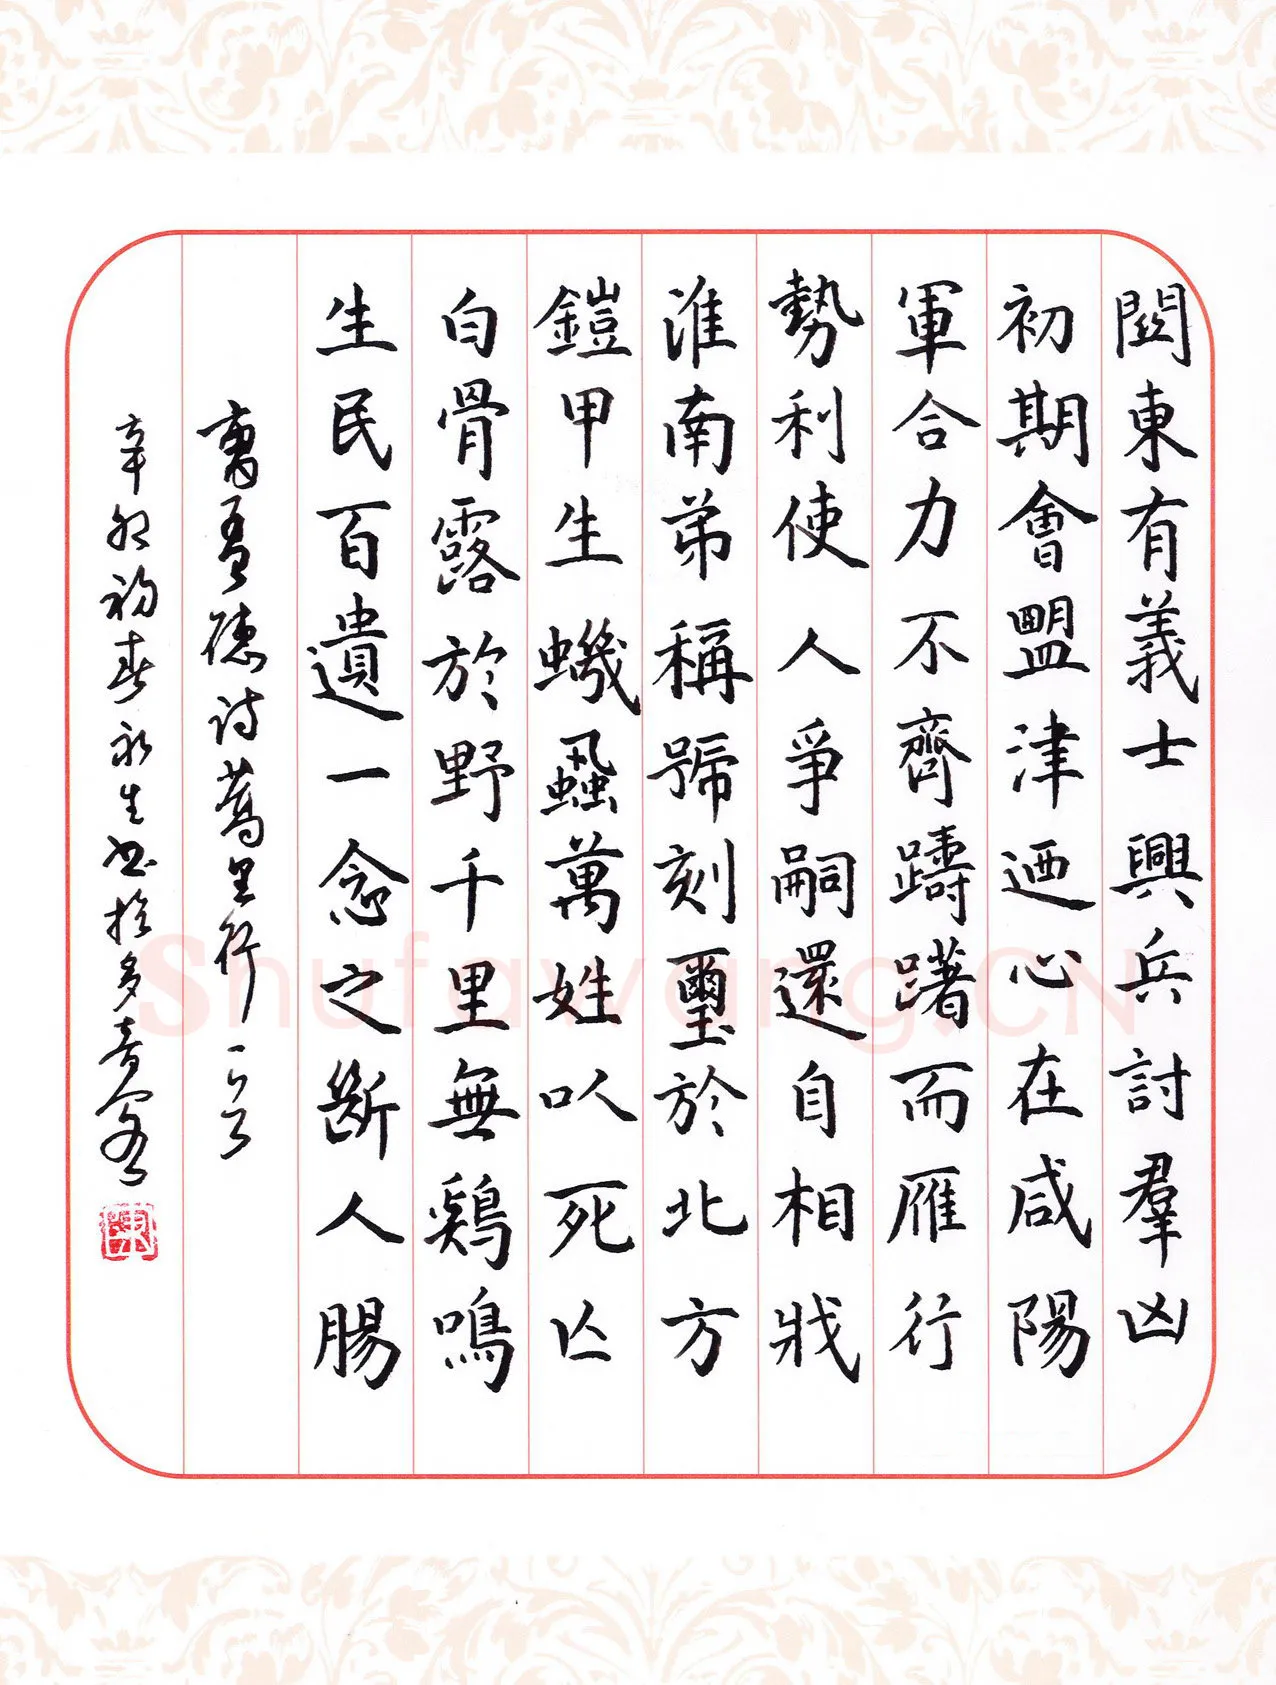 關東有義士興兵討羣凶
初期會盟津迺心在咸陽
軍合力不齊躊躇而雁行
勢利使人爭嗣還自相戕
淮南弟稱號刻璽於北方
鎧甲生蟣蝨萬姓以死亡
白骨露於野千里無鷄鳴
生民百遺一念之斷人腸
曹孟德詩蒿里行一首
辛卯初春永生書於
Shufawang.CN